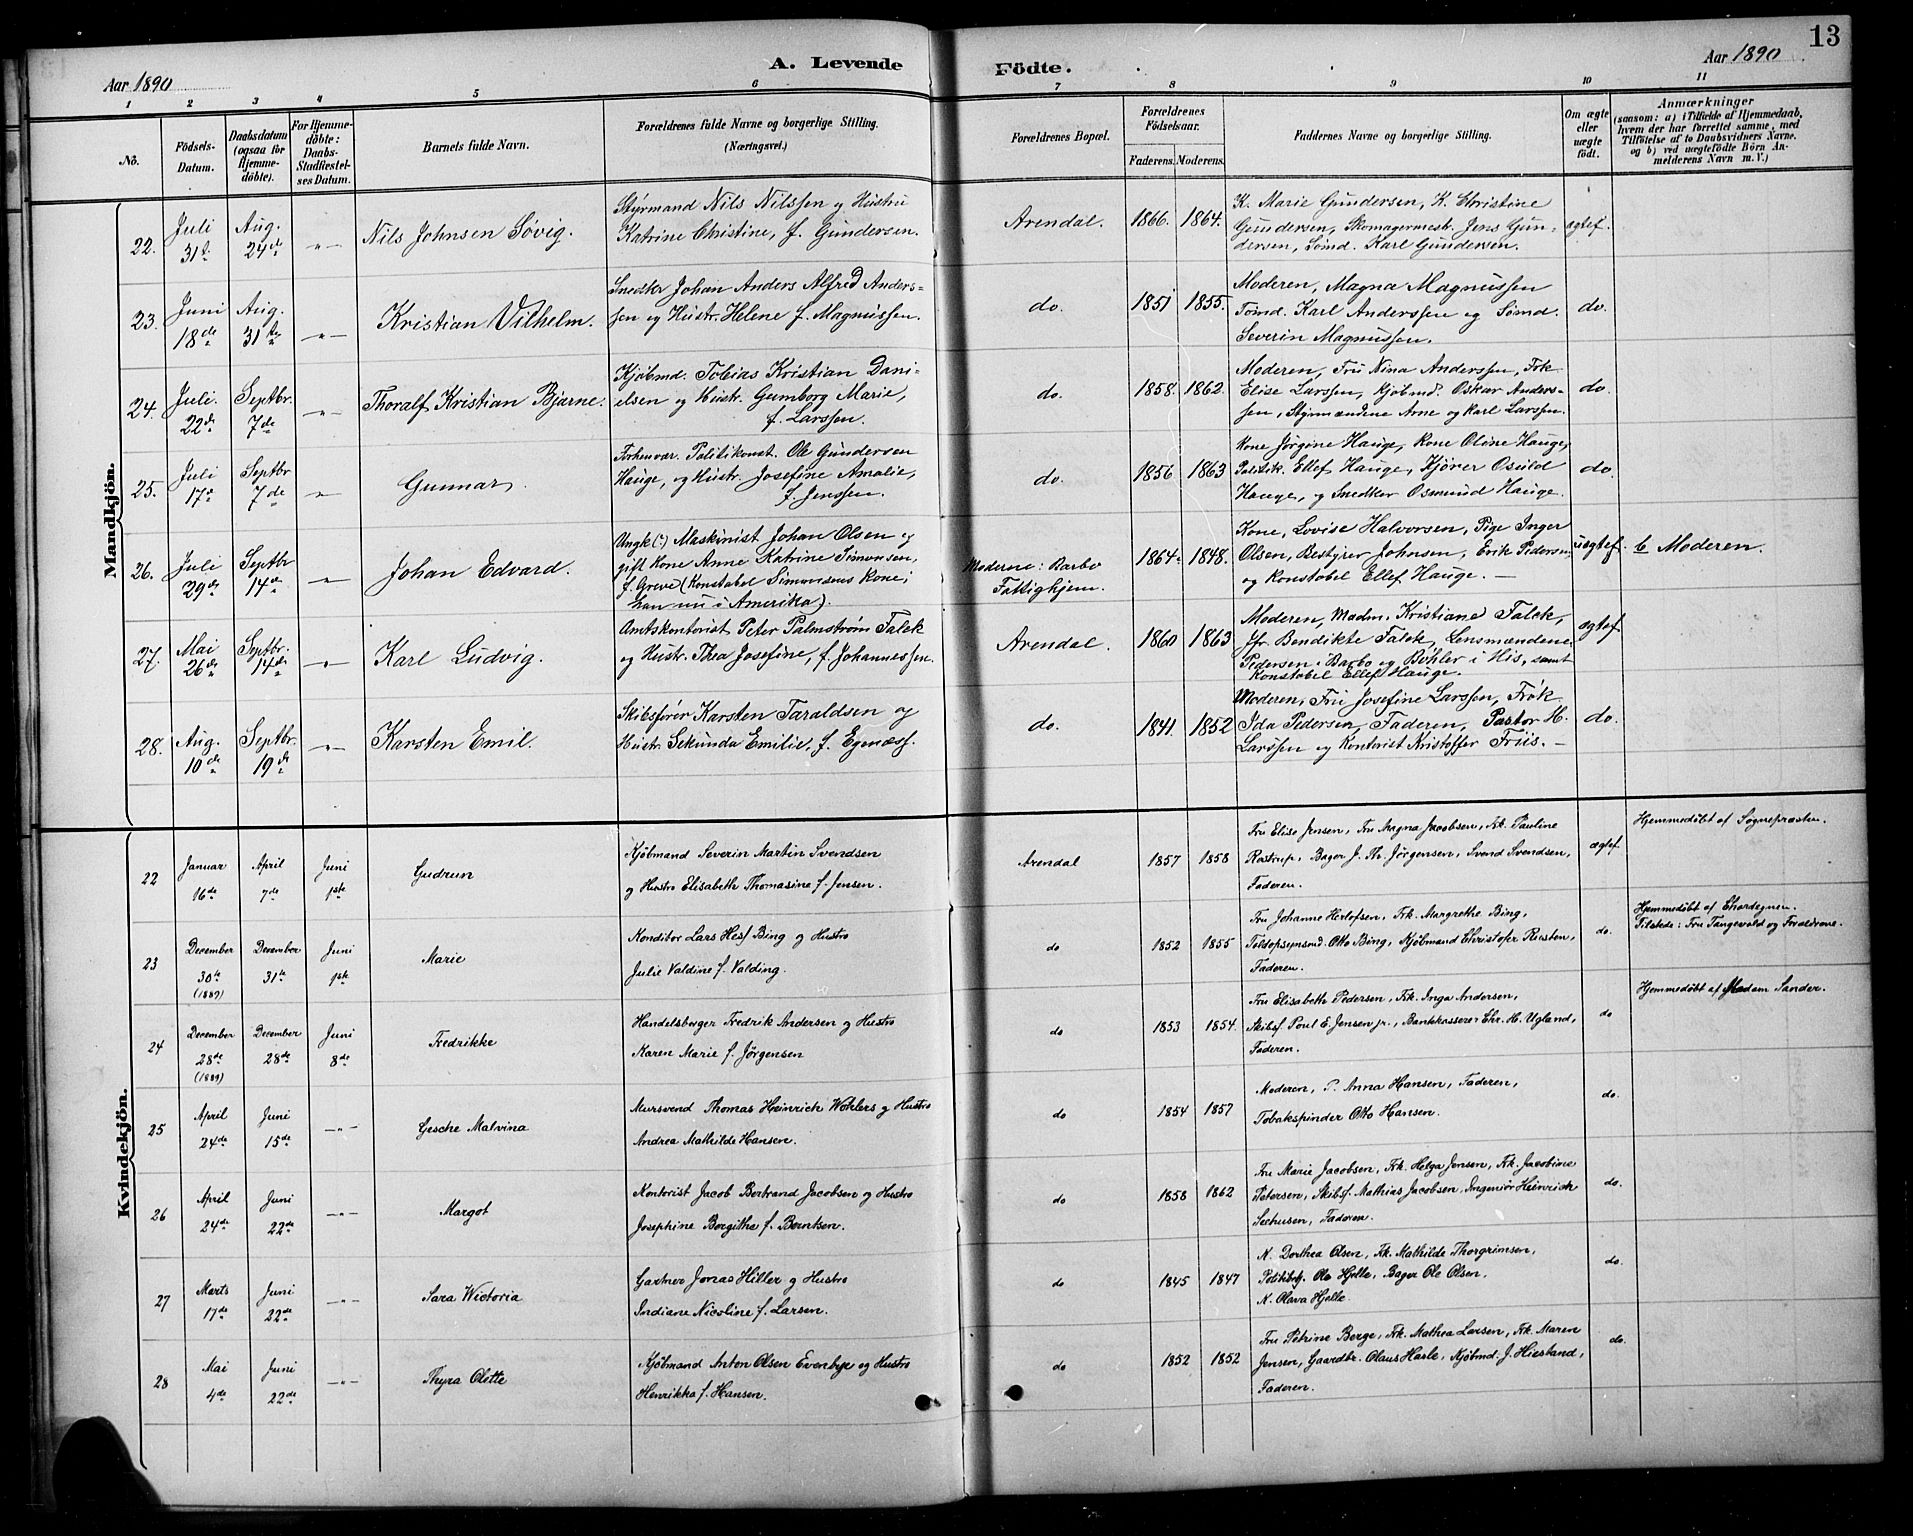 13
Aar 1890
A. Levende
Födte.
Aar 1890
1 2 3 4 5 6 7 8 9 10 11
Nö.
Födsels-
Datum.
Daabsdatum
(ogsaa for
Hjemme-
döbte).
For Hjemme-
döbte:
Daabs-
Stadfæstel-
ses Datum.
Barnets fulde Navn.
Forældrenes fulde Navne og borgerlige Stilling.
(Næringsvei.)
Forældrenes Bopæl.
Forældrenes
Födselsaar.
Faderens. Moderens.
Faddernes Navne og borgerlige Stilling.
Om ægte
eller
uægte
födt.
Anmærkninger
(saasom: a) i Tilfælde af Hjemmedaab,
hvem der har forrettet samme, med
Tilföielse af to Daabsvidners Navne.
og b) ved uægtefödte Börn An-
melderens Navn m.V.)
Mandkjön.
22. Juli 31te Aug. 24de -„- Nils Johnsen Søvig.
Styrmand Nils Nilssen og Hustru
Katrine Christine, f. Gundersen.
Arendal. 1866. 1864.
K. Marie Gundersen, K. Christine
Gundersen, Skomagermestr. Jens Gun-
dersen, Sømd. Karl Gundersen.
ægtef.
23. Juni 18de Aug. 31te -„- Kristian Vilhelm.
Snedkr Johan Anders Alfred Anders-
sen og Hustr. Helene f. Magnussen.
do. 1851 1855.
Moderen, Magna Magnussen
Tømd. Karl Anderssen og Sømd.
Severin Magnussen.
do.
24. Juli. 22de Septbr. 7de -„- Thoralf Kristian Bjarne.
Kjøbmd. Tobias Kristian Dani-
elsen og Hustr. Gumborg Marie,
f. Larssen.
do. 1858. 1862.
Moderen, Fru Nina Anderssen, Frk.
Elise Larssen, Kjøbmd. Oskar Anders-
sen, Styrmændene Arne og Karl Larssen.
do.
25. Juli 17de Septbr 7de -„- Gunnar.
Forhenvar. Politikonst. Ole Gundersen
Hauge, og Hustr. Josefine Amalie,
f. Jenssen.
do. 1856 1863
Kone Jørgine Hauge, Kone Oline Hauge,
Politik. Ellef Hauge, Kjører Osuld
Hauge, og Snedker Osmund Hauge.
do.
26. Juli 29de Septbr 14de -„- Johan Edvard.
Ungk(:) Maskinist Johan Olsen og
gift Kone Anne Katrine Simonsen,
f. Greve (Konstabel Simonsens Kone,
han nu i Amerika).
Moderne: Barbo
Fattighjem. 1864. 1848.
Kone, Lovise Halvorsen, Pige Inger
Olsen, Bestyrer Johnsen, Erik Pedersen
og Konstabel Ellef Hauge. —
uægtef. b Moderen.
27. Mai 26de Septbr. 14de -„- Karl Ludvig.
Amtskontorist Peter Palmstrøm Falck
og Hustr. Thea Josefine, f. Johannessen.
Arendal. 1860 1863
Moderen, Madm. Kristiane Falck,
Jfr. Bendikte Falck, Lensmændene
Pedersen i Barbo og Bøhler i His, samt
Konstabel Ellef Hauge.
ægtef
28. Aug. 10de Septbr. 19de -„- Karsten Emil.
Skibsfører Karsten Taraldsen og
Hustr. Sekunda Emilie, f. Egenæss.
do. 1841. 1852
Moderen, Fru Josefine Larssen, Frøk
Ida Pedersen, Faderen, Pastor H.
Larssen og Kontorist Kristoffer Friis. —
do.
Kvindekjön.
22 Januar 16de April 7de Juni 1ste Gudrun
Kjøbmand Severin Martin Svendsen
og Hustro Elisabeth Thomasine f. Jensen.
Arendal 1857 1858
Fru Elise Jensen, Fru Magna Jacobsen, Frk. Pauline
Rostrup, Bager J. Th. Jørgensen, Svend Svendsen,
Faderen.
ægtef.
Hjemmedøbt af Sognepræsten.
23 December 30te (1889) December 31te Juni 1ste Marie
Konditor Lars Hess Bing og Hustro
Julie Valdine f. Valding.
do 1852 1855
Fru Johanne Herlofsen, Frk. Margrethe Bing,
Toldopsynsmd. Otto Bing, Kjøbmand Christofer Riesten,
Faderen.
do.
Hjemmedøbt af Chordegnen.
Tilstede: Fru Tangevald og Forældrene.
24 December 28de (1889) December 28de Juni 8de Fredrikke
Handelsborger Fredrik Andersen og Hustro
Karen Marie f. Jørgensen
do 1853 1854.
Fru Elisabeth Pedersen, Frk. Inga Andersen,
Skibsf. Poul E. Jensen jr., Bankkasserer Chr. H. Ugland,
Faderen.
do
Hjemmedøbt af Madam Sander.
25 April 24de Juni 15de -„- Gesche Malvina
Mursvend Thomas Heinrich Wohlers og Hustro
Andrea Mathilde Hansen.
do 1854 1857
Moderen, P. Anna Hansen, Faderen,
Tobakspinder Otto Hansen.
do.
26 April 24de Juni 22de -„- Margot
Kontorist Jacob Bertrand Jacobsen og Hustro
Josephine Bergitha f. Berntsen.
do 1858 1862
Fru Marie Jacobsen, Frk. Helga Jensen, Frk. Jacobine
Petersen, Skibsf. Mathias Jacobsen, Ingeniør Heinrich
Seehusen, Faderen.
do.
27 Marts 17de Juni 22de -„- Sara Wictoria
Gartner Jonas Hiller og Hustro
Indiane Nicoline f. Larsen.
do 1845 1847
K. Dorthea Olsen, Frk. Mathilde Thorgrimsen,
Politibetj. Ole Hjelle, Bager Ole Olsen.
K. Olava Hjelle.
do.
28 Mai 4de Juni 22de -„- Thyra Olette
Kjøbmand Anton Olsen Evenbye og Hustro
Henrikka f. Hansen.
do 1852 1852
Fru Petrine Berge, Frk. Mathea Larsen, Frk. Maren
Jensen, Gaardbr. Olaus Hasle, Kjøbmd. J. Hiestand,
Faderen.
do.